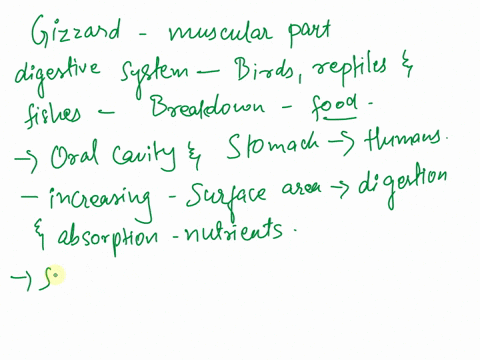 Gizzard - muscular part
digestive system - Birds, reptiles &
fishes - Breakdown - food.
→ Oral cavity & Stomach → Humans.
- increasing - Surface area → digestion
& absorption - nutrients.
→ S